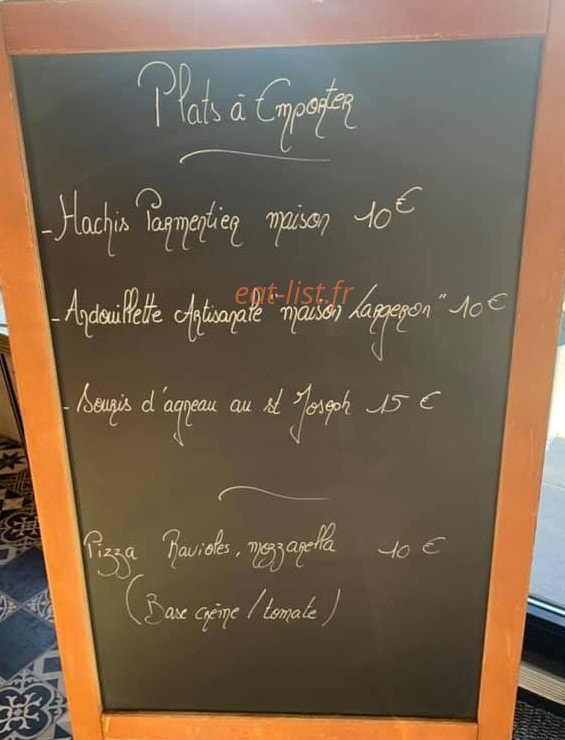 Plats à Emporter
- Hachis Parmentier maison 10€
eat-list.fr
- Andouillette Artisanale "maison Largeron" 10€
- Souris d'agneau au st Joseph 15 €
Pizza Ravioles, mozzarella 10 €
(Base crème / tomate)